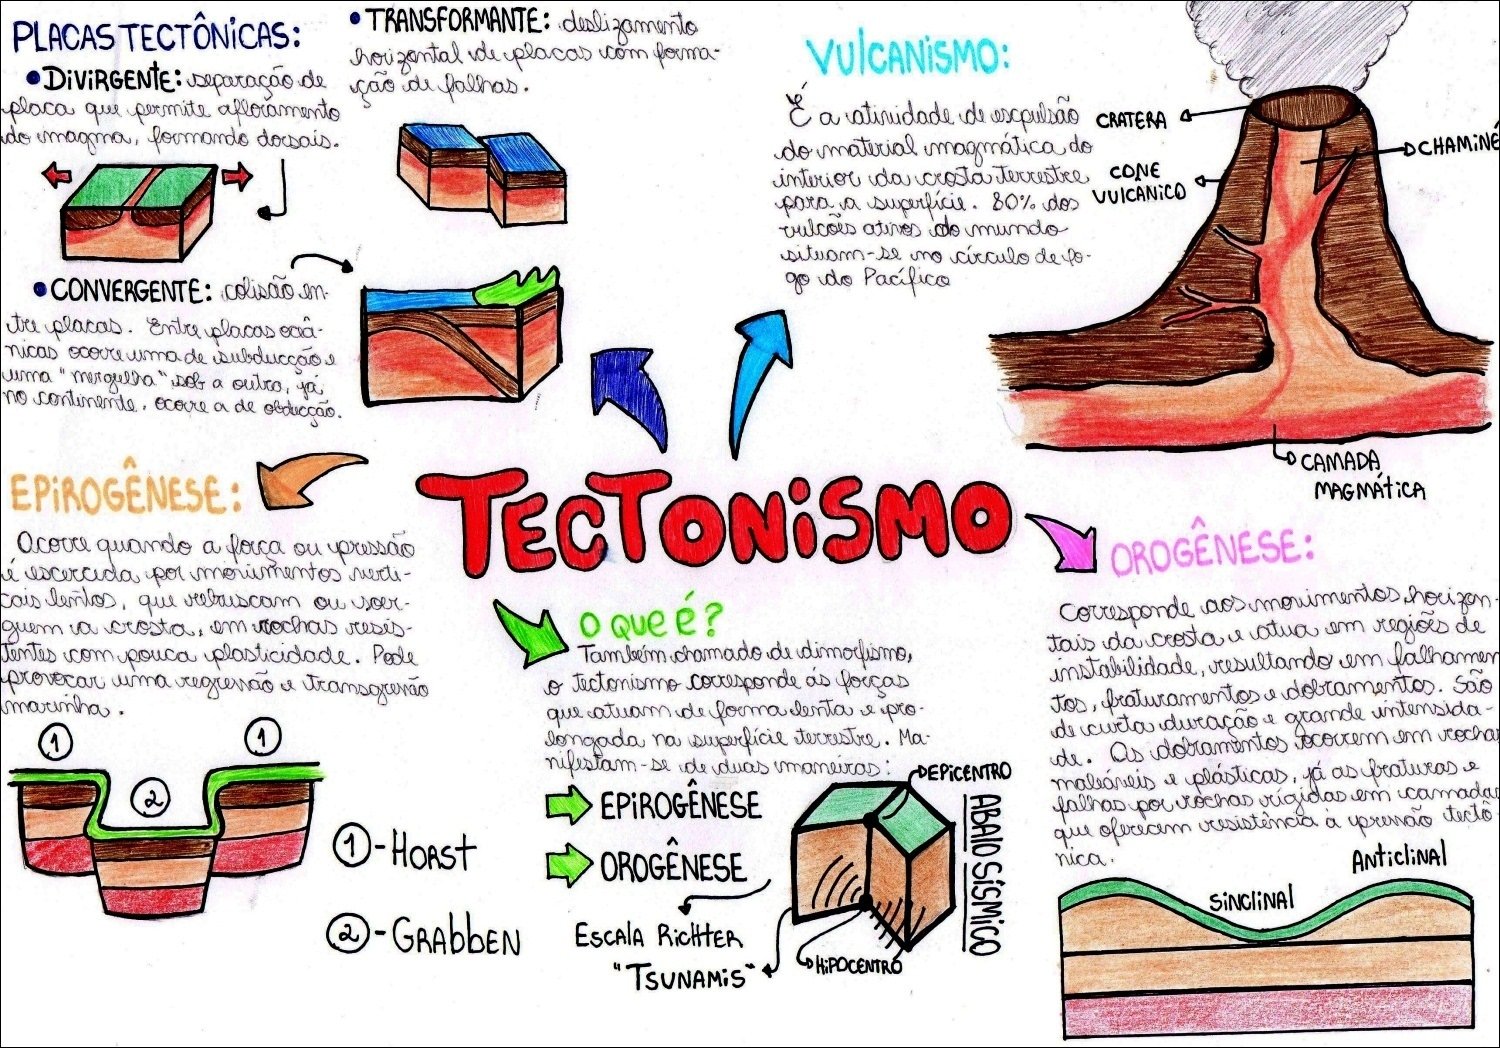 PLACAS TECTÔNICAS:
• DIVIRGENTE: separação de
placa que permite afloramento
do magma, formando dorsais.
• TRANSFORMANTE: deslizamento
horizontal de placas com forma-
ção de falhas.
• CONVERGENTE: colisão en-
tre placas. Entre placas oceâ-
nicas ocorre uma de subducção e
uma "mergulha" sob a outra, já
no continente, ocorre a de obducção.
VULCANISMO:
É a atividade de expulsão
do material magmática do
interior da crosta terrestre
para a superfície. 80% dos
vulcões ativos do mundo
situam-se no círculo de fo-
go do Pacífico
CRATERA
CONE
VULCANICO
CHAMINÉ
CAMADA
MAGMÁTICA
TECTONISMO
EPIROGÊNESE:
Ocorre quando a força ou pressão
é exercida por movimentos verti-
cais lentos, que rebuscam ou soer-
guem a crosta, em rochas resis-
tentes com pouca plasticidade. Pode
provocar uma regressão e transgressão
marinha.
1
1
2
1 - HORST
2 - GRABBEN
O QUE É?
Também chamado de dimorfismo,
o tectonismo corresponde ás forças
que atuam de forma lenta e pro-
longada na superfície terrestre. Ma-
nifestam-se de duas maneiras:
EPIROGÊNESE
OROGÊNESE
ESCALA RICHTER
"TSUNAMIS"
EPICENTRO
HIPOCENTRO
ABALO SÍSMICO
OROGÊNESE:
Corresponde aos movimentos horizon-
tais da crosta e atua em regiões de
instabilidade, resultando em falhamen
tos, fraturamentos e dobramentos. São
de curta duração e grande intensida-
de. Os dobramentos ocorrem em rochas
maleáveis e plásticas, já as fraturas e
falhas por rochas rígidas em camadas
que oferecem resistência a pressão tectô
nica.
SINCLINAL
ANTICLINAL